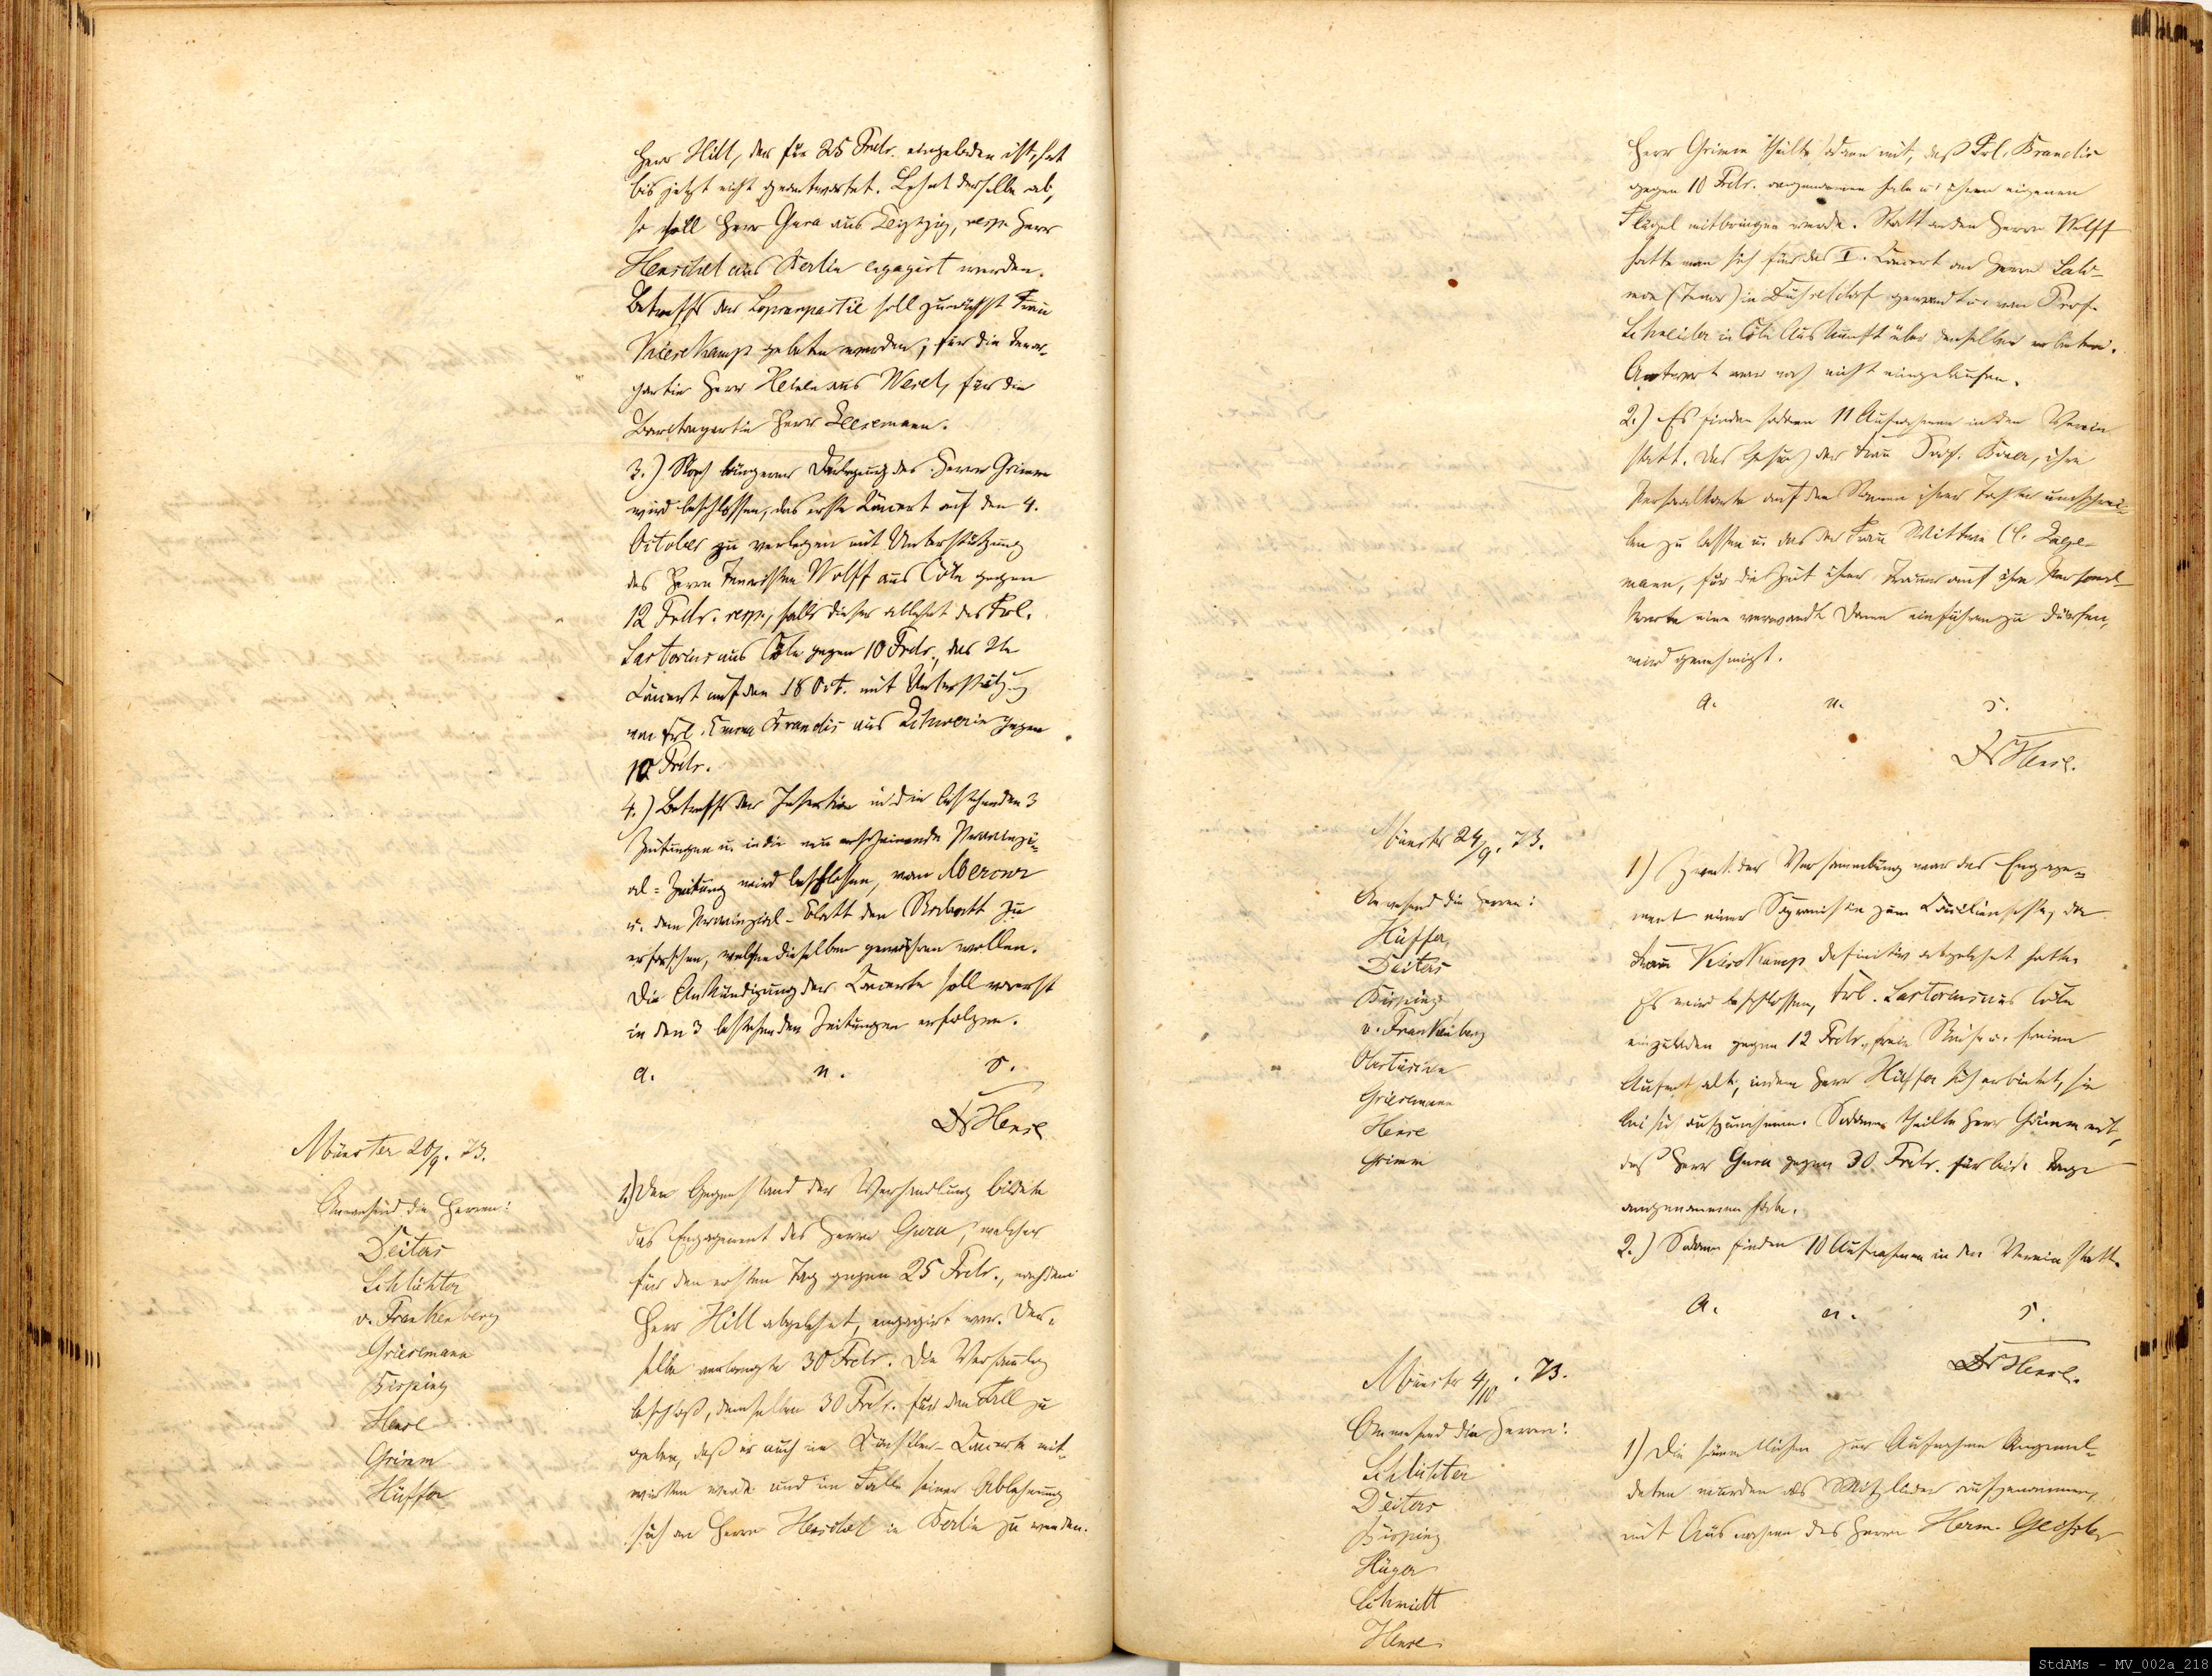 Herr Hill, der für 25 Frdr. eingeladen ist, hat
bis jetzt nicht geantwortet. Lehnt derselbe ab,
so soll Herr Gura aus Leipzig, resp. Herr
Henschel aus Berlin engagirt werden.
Betreffs der Sopranpartie soll zunächst Frau
Kieskamp gebeten werden, für die Tenor-
partie Herr Helele aus Wesel, für die
Baritonpartie Herr Zeesemann.
3.) Nach längerer Darlegung des Herrn Grimm
wird beschlossen, das erste Concert auf den 4.
October zu verlegen mit Unterstützung
des Herrn Tenoristen Wolff aus Cöln gegen
12 Frdr. resp., falls dieser ablehnt des Frl.
Sartorius aus Cöln gegen 10 Frdr., das 2te
Concert auf den 18 Oct. mit Unterstützung
von Frl. Emma Brandis aus Schwerin gegen
10 Frdr.
4.) Betreffs der Insertion in die bestehenden 3
Zeitungen u. in die neu erscheinende Provinzi-
al-Zeitung wird beschlossen, vom Mercur
u. dem Provinzial-Blatt den Rabatt zu
erforschen, welchen dieselben gewähren wollen.
Die Ankündigung der Concerte soll vorerst
in den 3 bestehenden Zeitungen erfolgen.
a. u. s.
Dr Hense
Münster 20/9. 73.
Anwesend die Herren:
Deiters
Schlichter
v. Frankenberg
Griesemann
Kisping
Hense
Grimm
Hüffer
1.) Den Gegenstand der Verhandlung bildete
das Engagement des Herrn Gura, welcher
für den ersten Tag gegen 25 Frdr., nachdem
Herr Hill abgelehnt, engagirt war. Der-
selbe verlangte 30 Frdr. Die Versammlg
beschloß, demselben 30 Frdr. für den Fall zu
geben, daß er auch im Künstler-Concerte mit-
wirken werde und im Falle seiner Ablehnung
sich an Herrn Henschel in Berlin zu wenden.
Herr Grimm theilte sodann mit, daß Frl. Brandis
gegen 10 Frdr. angenommen habe u. ihren eigenen
Flügel mitbringen werde. Statt an den Herrn Wolff
hatte man sich für das I. Concert an Herrn
(Tenor) in Düsseldorf gewandt u. von Prof.
Schneider in Cöln Auskunft über denselben erbeten.
Antwort war noch nicht eingelaufen.
2.) Es finden sodann 11 Aufnahmen in den Verein
statt. Das Gesuch der Frau Prof. , ihre
Personalkarte auf den Namen ihrer Tochter umschrei-
ben zu lassen u. das der Frau Wittwe C. Zege-
mann, für die Zeit ihrer Trauer auf ihre Personal-
karte eine verwandte Dame einführen zu dürfen,
wird genehmigt.
a. u. s.
Dr Hense.
Münster 24/9. 73.
Anwesend die Herren:
Hüffer,
Deiters
Kisping
v. Frankenberg
Obertüschen
Griesemann
Hense
Grimm
1) Zweck der Versammlung war das Engage-
ment einer Sopranistin zum Cäcilienfeste, da
Frau Kieskamp definitiv abgelehnt hatte.
Es wird beschlossen, Frl. Sartorius aus Cöln
einzuladen gegen 12 Frdr., freie Reise u. freien
Aufenthalt, indem Herr Hüffer sich erbietet, sie
bei sich aufzunehmen. Sodann theilte Herr Grimm mit,
daß Herr Gura gegen 30 Frdr. für beide Tage
angenommen habe.
2.) Sodann finden 10 Aufnahmen in den Verein statt.
a. u. s.
Dr Hense.
Münster 4/10. 73.
Anwesend die Herren:
Schlichter
Deiters
Kisping
Hüger
Schmidt
Hense
1) Die sämmtlichen zur Aufnahme Angemel-
deten wurden als Mitglieder aufgenommen,
mit Ausnahme des Herrn Herm. Geissler
StdAMs - MV_002a_218